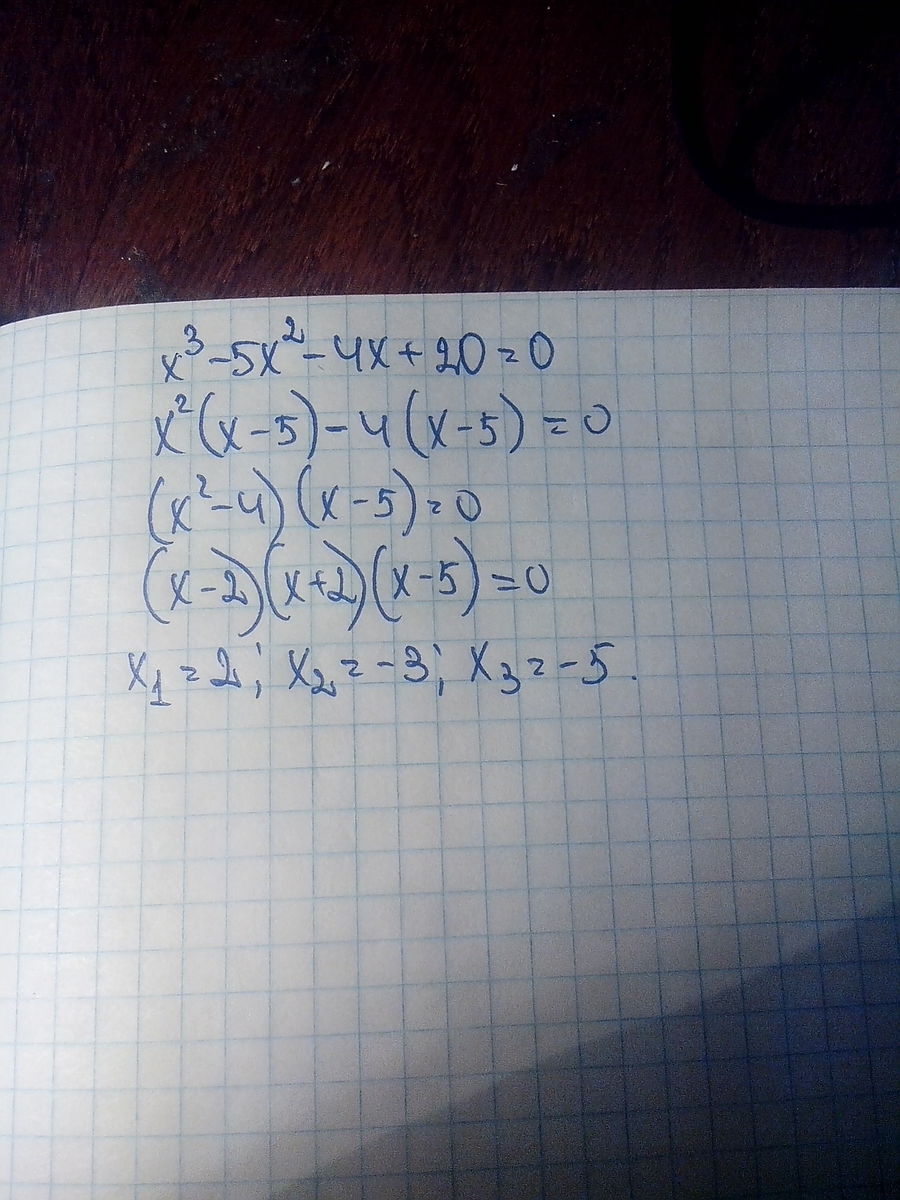 x³-5x²-4x+20=0
x²(x-5)-4(x-5)=0
(x²-4)(x-5)=0
(x-2)(x+2)(x-5)=0
x₁=2; x₂=-3; x₃=-5.